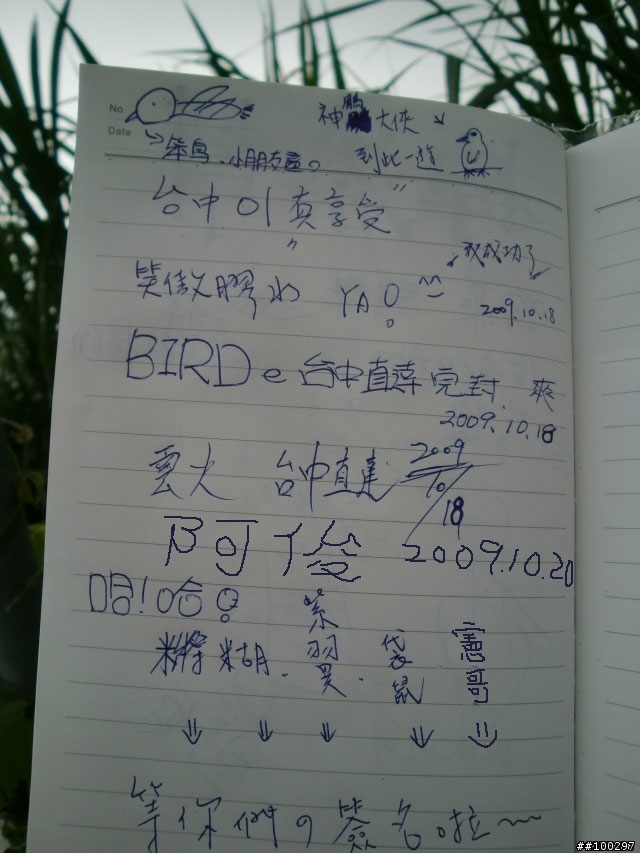 No
Date
神鵰大俠
笨鳥、小朋友
到此一遊
台中01真享受
我成功了
笑傲膠水 YA!
2009.10.18
BIRDe台中直達完封 爽
2009.10.18
雲火 台中直達 2009/10/18
阿俊 2009.10.20
哈!哈!
糊 紫翼 袋鼠
等你們的簽名啦~
##100297